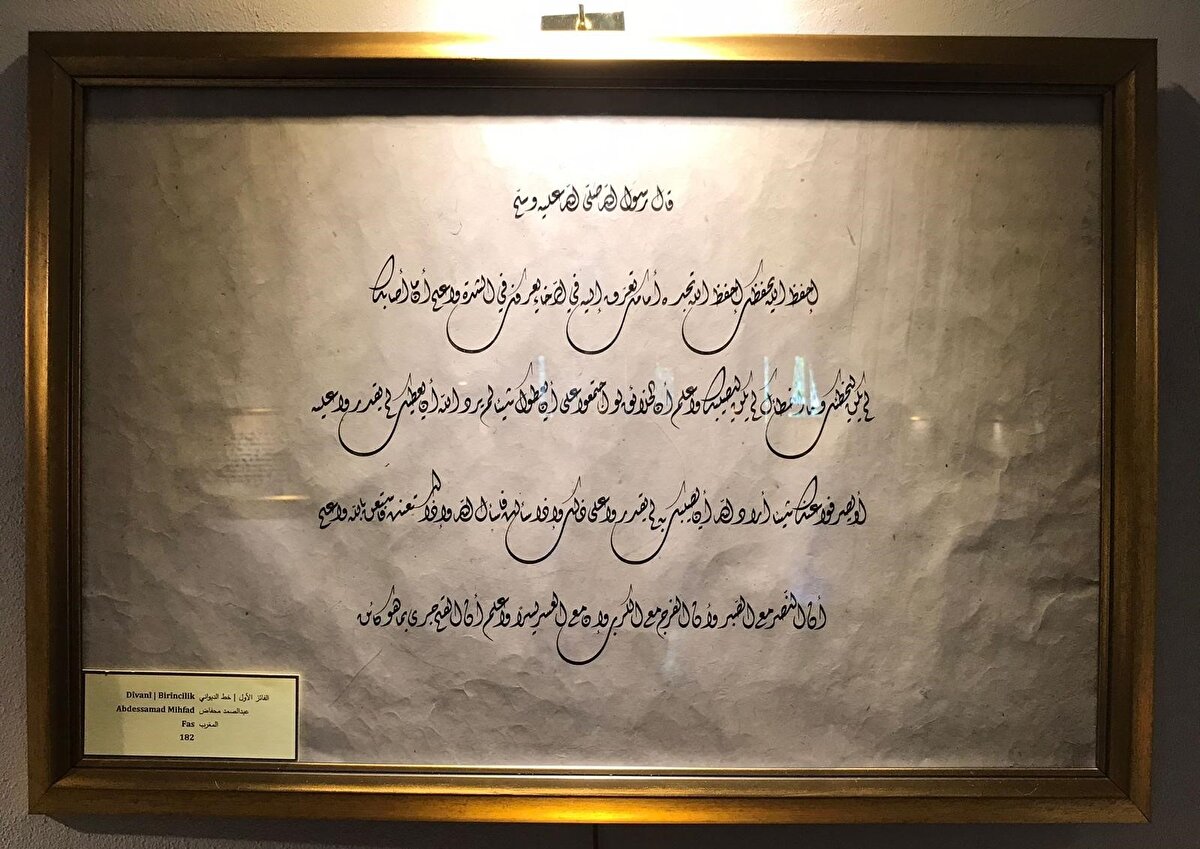 قال رسول الله صلى الله عليه وسلم
إحفظ الله يحفظك إحفظ الله تجده أمامك تعرف إليه في الرخاء يعرفك في الشدة واعلم أن ما أصابك
لم يكن ليخطئك وما أخطأك لم يكن ليصيبك واعلم أن الخلائق لو اجتمعوا على أن يعطوك شيئا لم يرد الله أن يعطيك لم يقدروا عليه
أو يصرفوا عنك شيئا أراد الله أن يصيبك به لم يقدروا على ذلك وإذا سألت فاسأل الله وإذا استعنت فاستعن بالله واعلم
أن النصر مع الصبر وأن الفرج مع الكرب وإن مع العسر يسرا واعلم أن القلم جرى بما هو كائن
Divani | Birincilik الفائز الأول | خط الديواني
Abdessamad Mihfad عبدالصمد محفاض
Fas المغرب
182